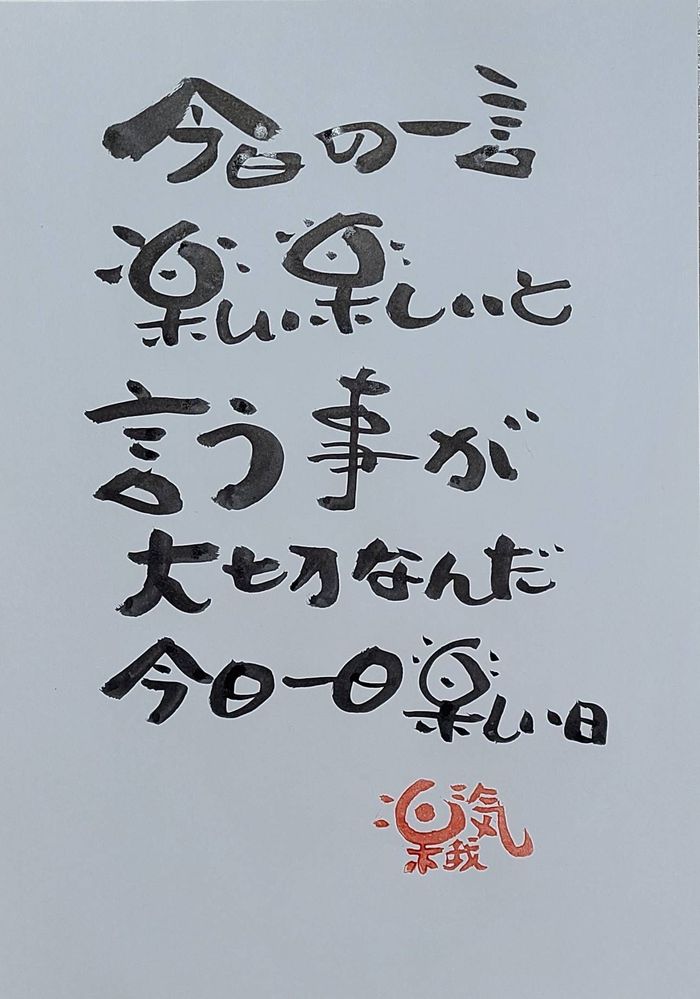 今日の一言
楽しい楽しいと
言う事が
大切なんだ
今日一日楽しい日
楽気